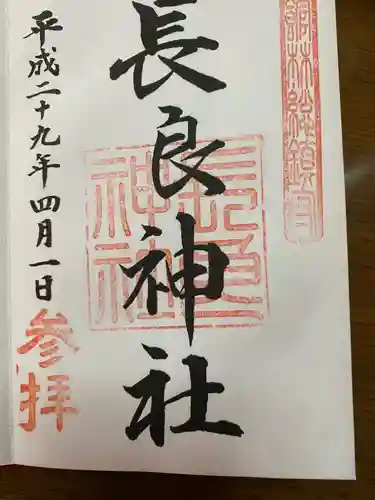 銅林総鎮守
長良神社
長良神社
平成二十九年四月一日
参拝